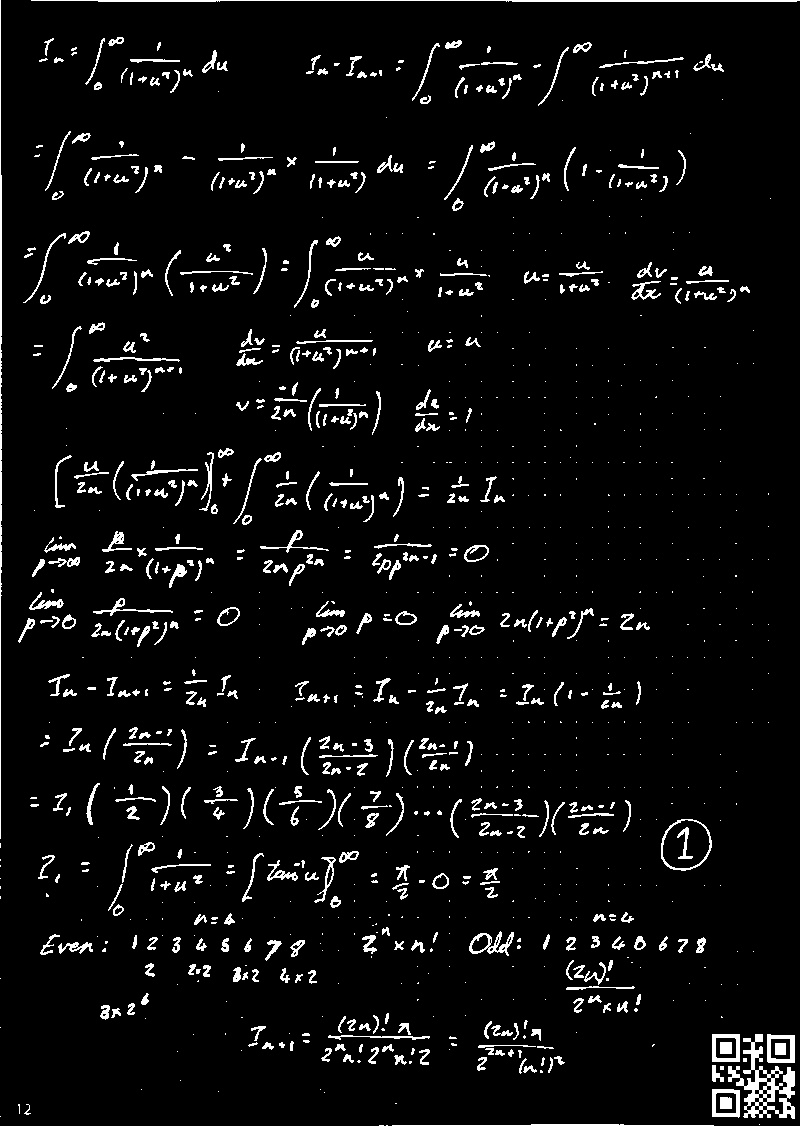 Iₙ = ∫₀^∞ 1/(1+u²)ⁿ du    Iₙ - Iₙ₊₁ = ∫₀^∞ 1/(1+u²)ⁿ - ∫₀^∞ 1/(1+u²)ⁿ⁺¹ du
= ∫₀^∞ 1/(1+u²)ⁿ - 1/(1+u²)ⁿ × 1/(1+u²) du = ∫₀^∞ 1/(1+u²)ⁿ (1 - 1/(1+u²))
= ∫₀^∞ 1/(1+u²)ⁿ (u²/(1+u²)) = ∫₀^∞ u/(1+u²)ⁿ × u/(1+u²)    u = u/(1+u²)    dv/dx = u/(1+u²)ⁿ
= ∫₀^∞ u²/(1+u²)ⁿ⁺¹    dv/du = u/(1+u²)ⁿ⁺¹    u = u
v = -1/2n (1/(1+u²)ⁿ)    du/dx = 1
[u/2n (1/(1+u²)ⁿ)]₀^∞ + ∫₀^∞ 1/2n (1/(1+u²)ⁿ) = 1/2n Iₙ
lim p→∞ p/2n × 1/(1+p²)ⁿ = p/2np²ⁿ = 1/2pp²ⁿ⁻¹ = 0
lim p→0 p/2n(1+p²)ⁿ = 0    lim p→0 p = 0    lim p→0 2n(1+p²)ⁿ = 2n
Iₙ - Iₙ₊₁ = 1/2n Iₙ    Iₙ₊₁ = Iₙ - 1/2n Iₙ = Iₙ (1 - 1/2n)
= Iₙ ((2n-1)/2n) = Iₙ₋₁ ((2n-3)/(2n-2)) ((2n-1)/2n)
= I₁ (1/2)(3/4)(5/6)(7/8) ... ((2n-3)/(2n-2)) ((2n-1)/2n)
①
I₁ = ∫₀^∞ 1/(1+u²) = [tan⁻¹u]₀^∞ = π/2 - 0 = π/2
n=4    n=4
Even: 1 2 3 4 5 6 7 8    2ⁿ × n!    Odd: 1 2 3 4 5 6 7 8
2    2×2    3×2    4×2    (2n)!/(2ⁿ × n!)
8×2⁶
Iₙ₊₁ = (2n)! π/(2ⁿ n! 2ⁿ n! 2) = (2n)! π/(2²ⁿ⁺¹ (n!)²)
12